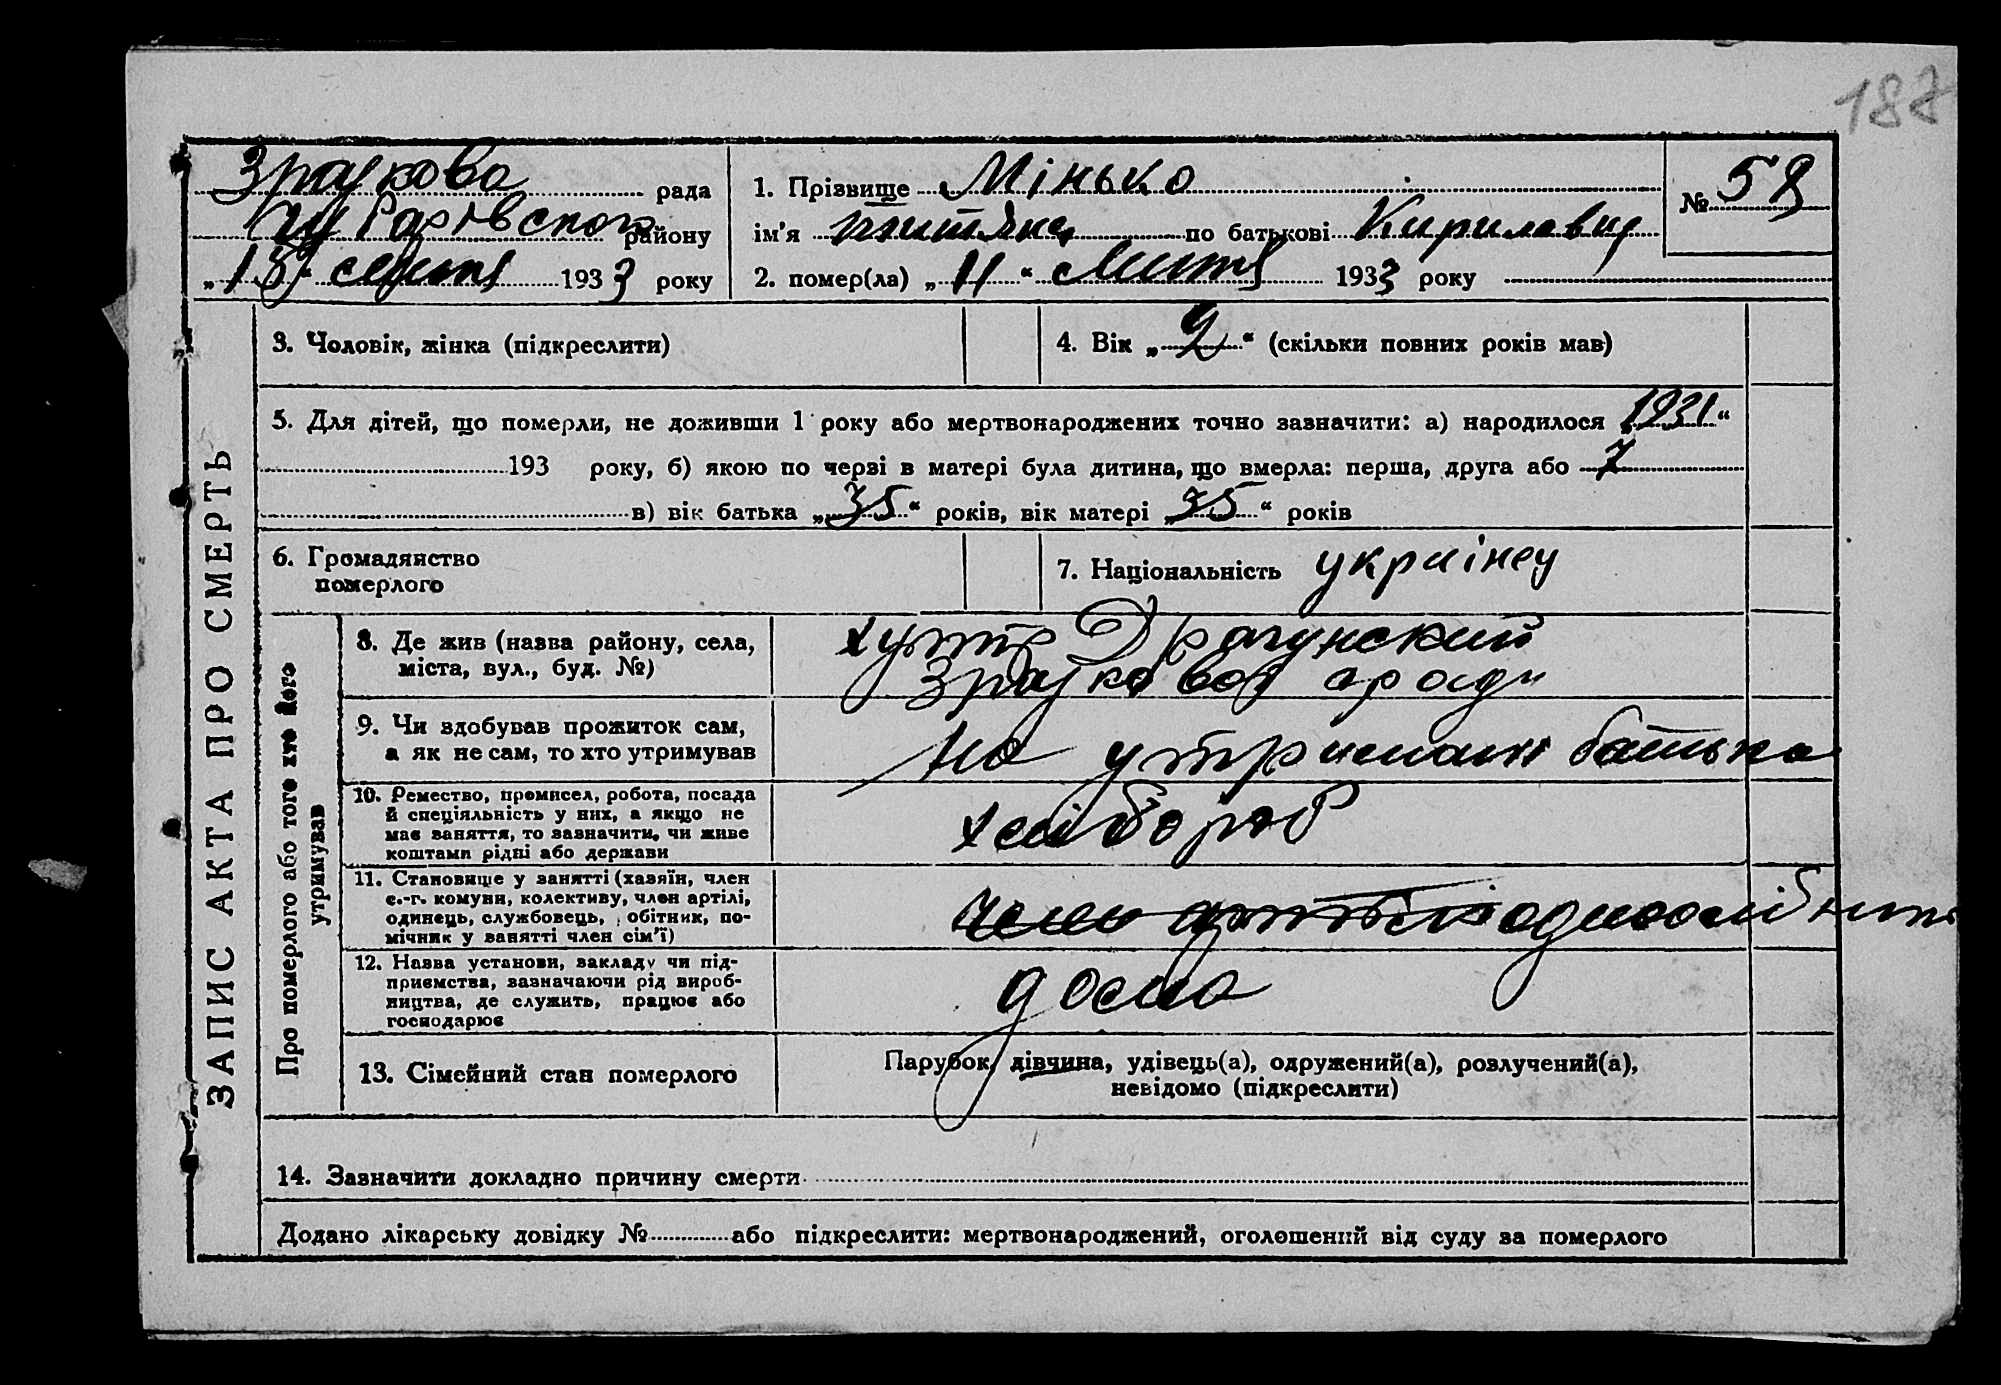 187
Зрайкова рада
району
„18“ 1933 року
1. Прізвище Мінько
ім'я по батькові Кирилавна
2. помер(ла) „11“ 1933 року
№ 58
ЗАПИС АКТА ПРО СМЕРТЬ
3. Чоловік, жінка (підкреслити)
4. Вік „2“ (скільки повних років мав)
5. Для дітей, що померли, не доживши 1 року або мертвонароджених точно зазначити: а) народилося „1931“
193 року, б) якою по черві в матері була дитина, що вмерла: перша, друга або 7
в) вік батька „35“ років, вік матері „35“ років
6. Громадянство
померлого
7. Національність українец
Про померлого або того хто його
утримував
8. Де жив (назва району, села,
міста, вул., буд. №)
хутір Драгунский
Зрайкової сроди
9. Чи здобував прожиток сам,
а як не сам, то хто утримував
на утримані батька
10. Ремество, промисел, робота, посада
й спеціяльність у них, а якщо не
має заняття, то зазначити, чи живе
коштами рідні або держави
хлібороб
11. Становище у занятті (хазяїн, член
с.-г. комуни, колективу, член артілі,
одинець, службовець, обітник, по-
мічник у занятті член сім'ї)
член артілі одноосібник
12. Назва установи, закладу чи під-
приємства, зазначаючи рід вироб-
ництва, де служить, працює або
господарює
дома
13. Сімейний стан померлого
Парубок, дівчина, удівець(а), одружений(а), розлучений(а),
невідомо (підкреслити)
14. Зазначити докладно причину смерти
Додано лікарську довідку № або підкреслити: мертвонароджений, оголошений від суду за померлого